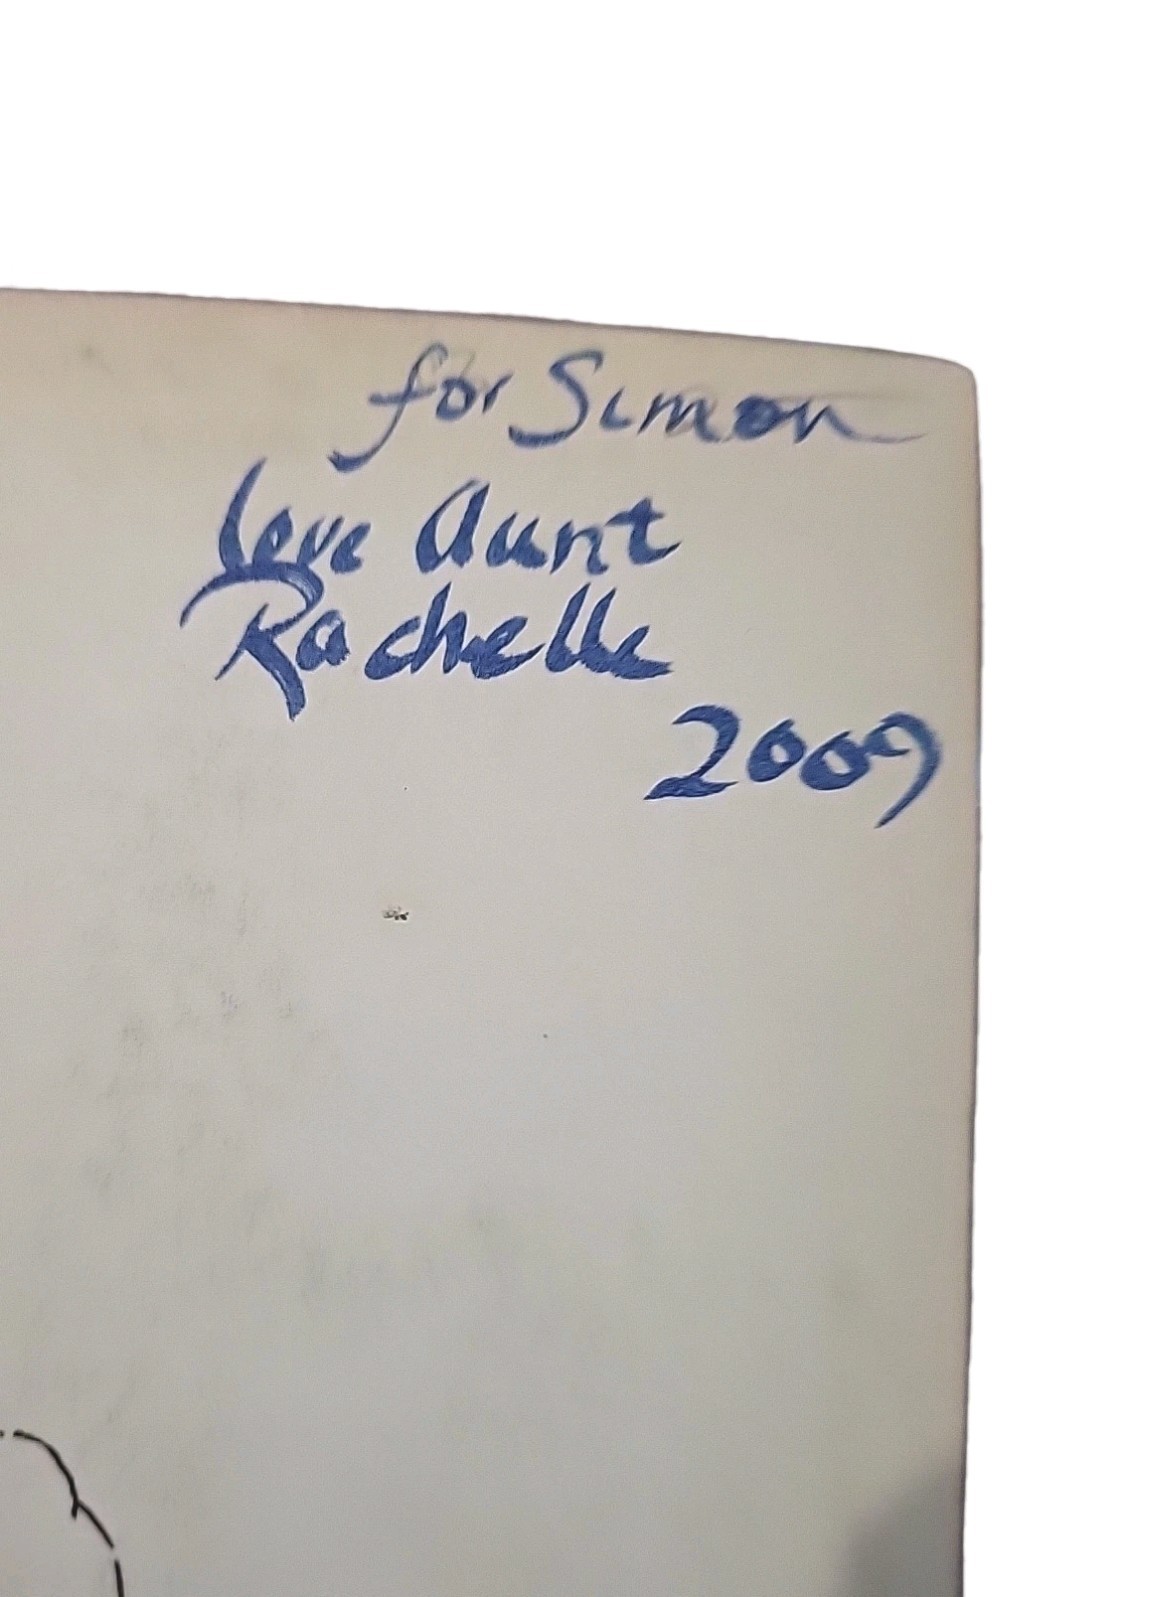 for Simon
love Aunt
Rachelle
2009